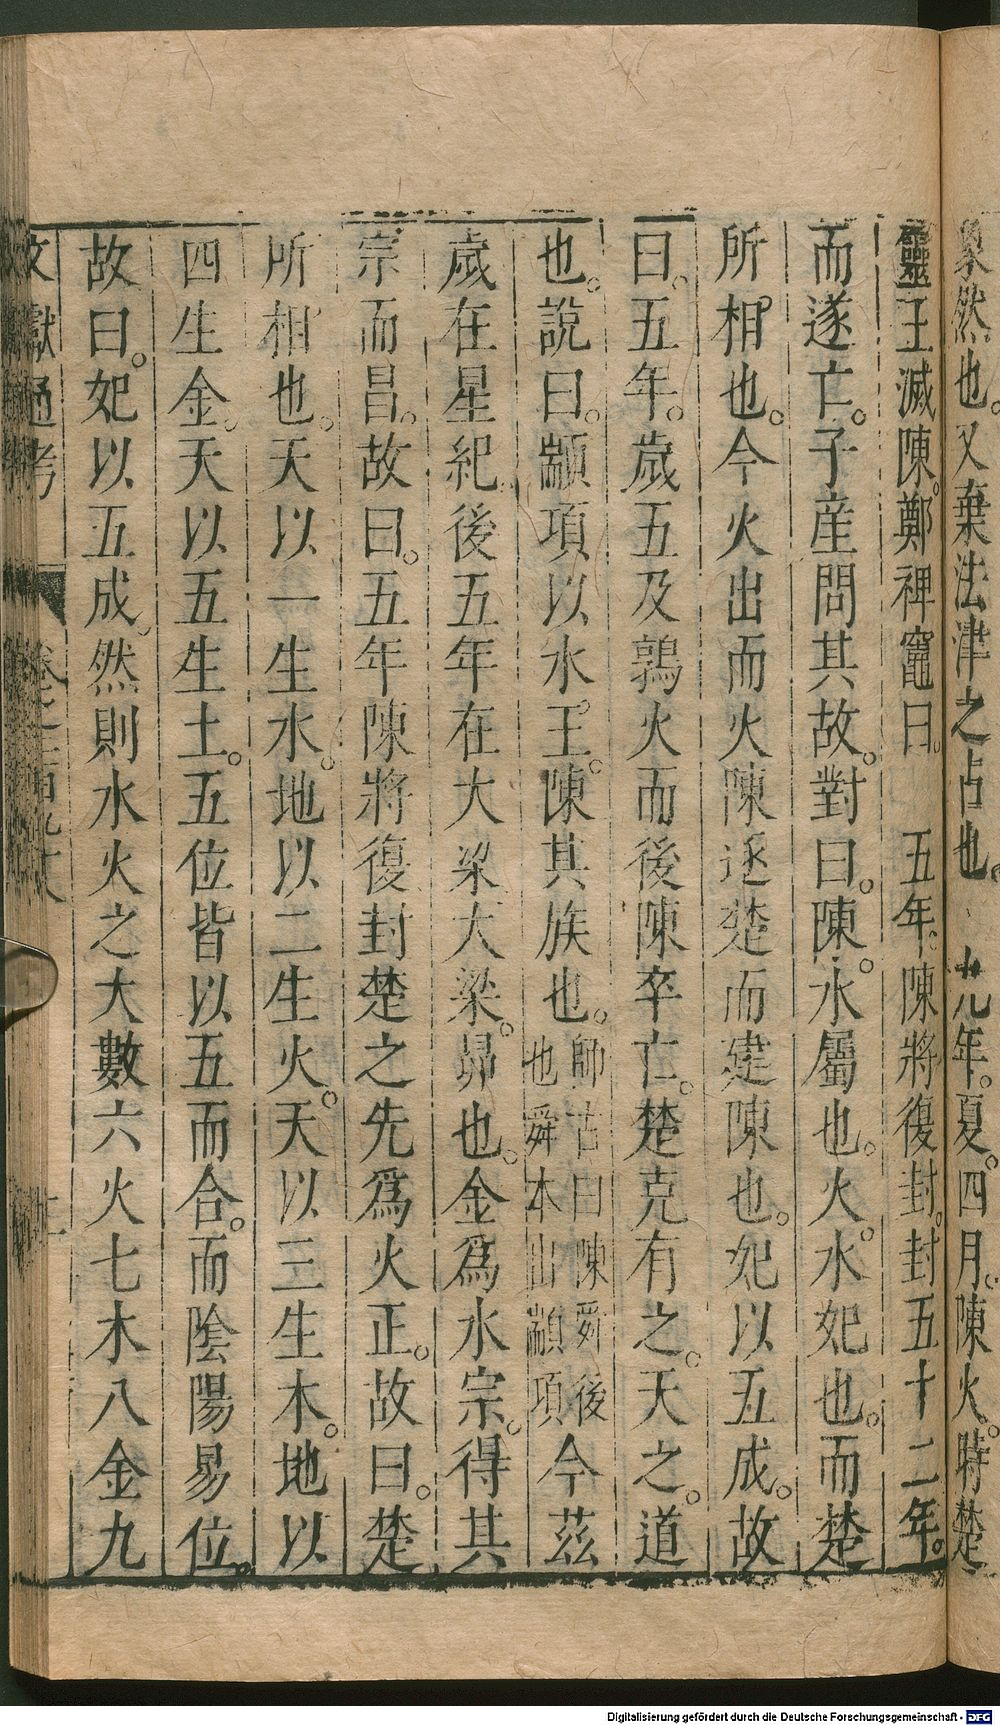 象然也。又棄法津之占也。 九年。夏。四月。陳火。時楚
靈王滅陳。鄭裨竈曰。 五年。陳將復封。封五十二年。
而遂亡。子產問其故。對曰。陳。水屬也。火。水妃也。而楚
所相也。今火出而火陳逐楚而建陳也。妃以五成。故
曰。五年。歲五及鶉火而後陳卒亡。楚克有之。天之。道
也。說曰。顓項以水王。陳其族也。師古曰陳舜後也舜本出顓項今茲
歲在星紀後五年在大梁大梁。昴也。金為水宗。得其
宗而昌。故曰。五年陳將復封楚之先為火正。故曰。楚
所相也。天以一生水。地以二生火。天以三生木。地以
四生金。天以五生土。五位皆以五而合。而陰陽易位。
故曰。妃以五成。然則水火之大數六火七木八金九
文獻通考
Digitalisierung gefördert durch die Deutsche Forschungsgemeinschaft - DFG